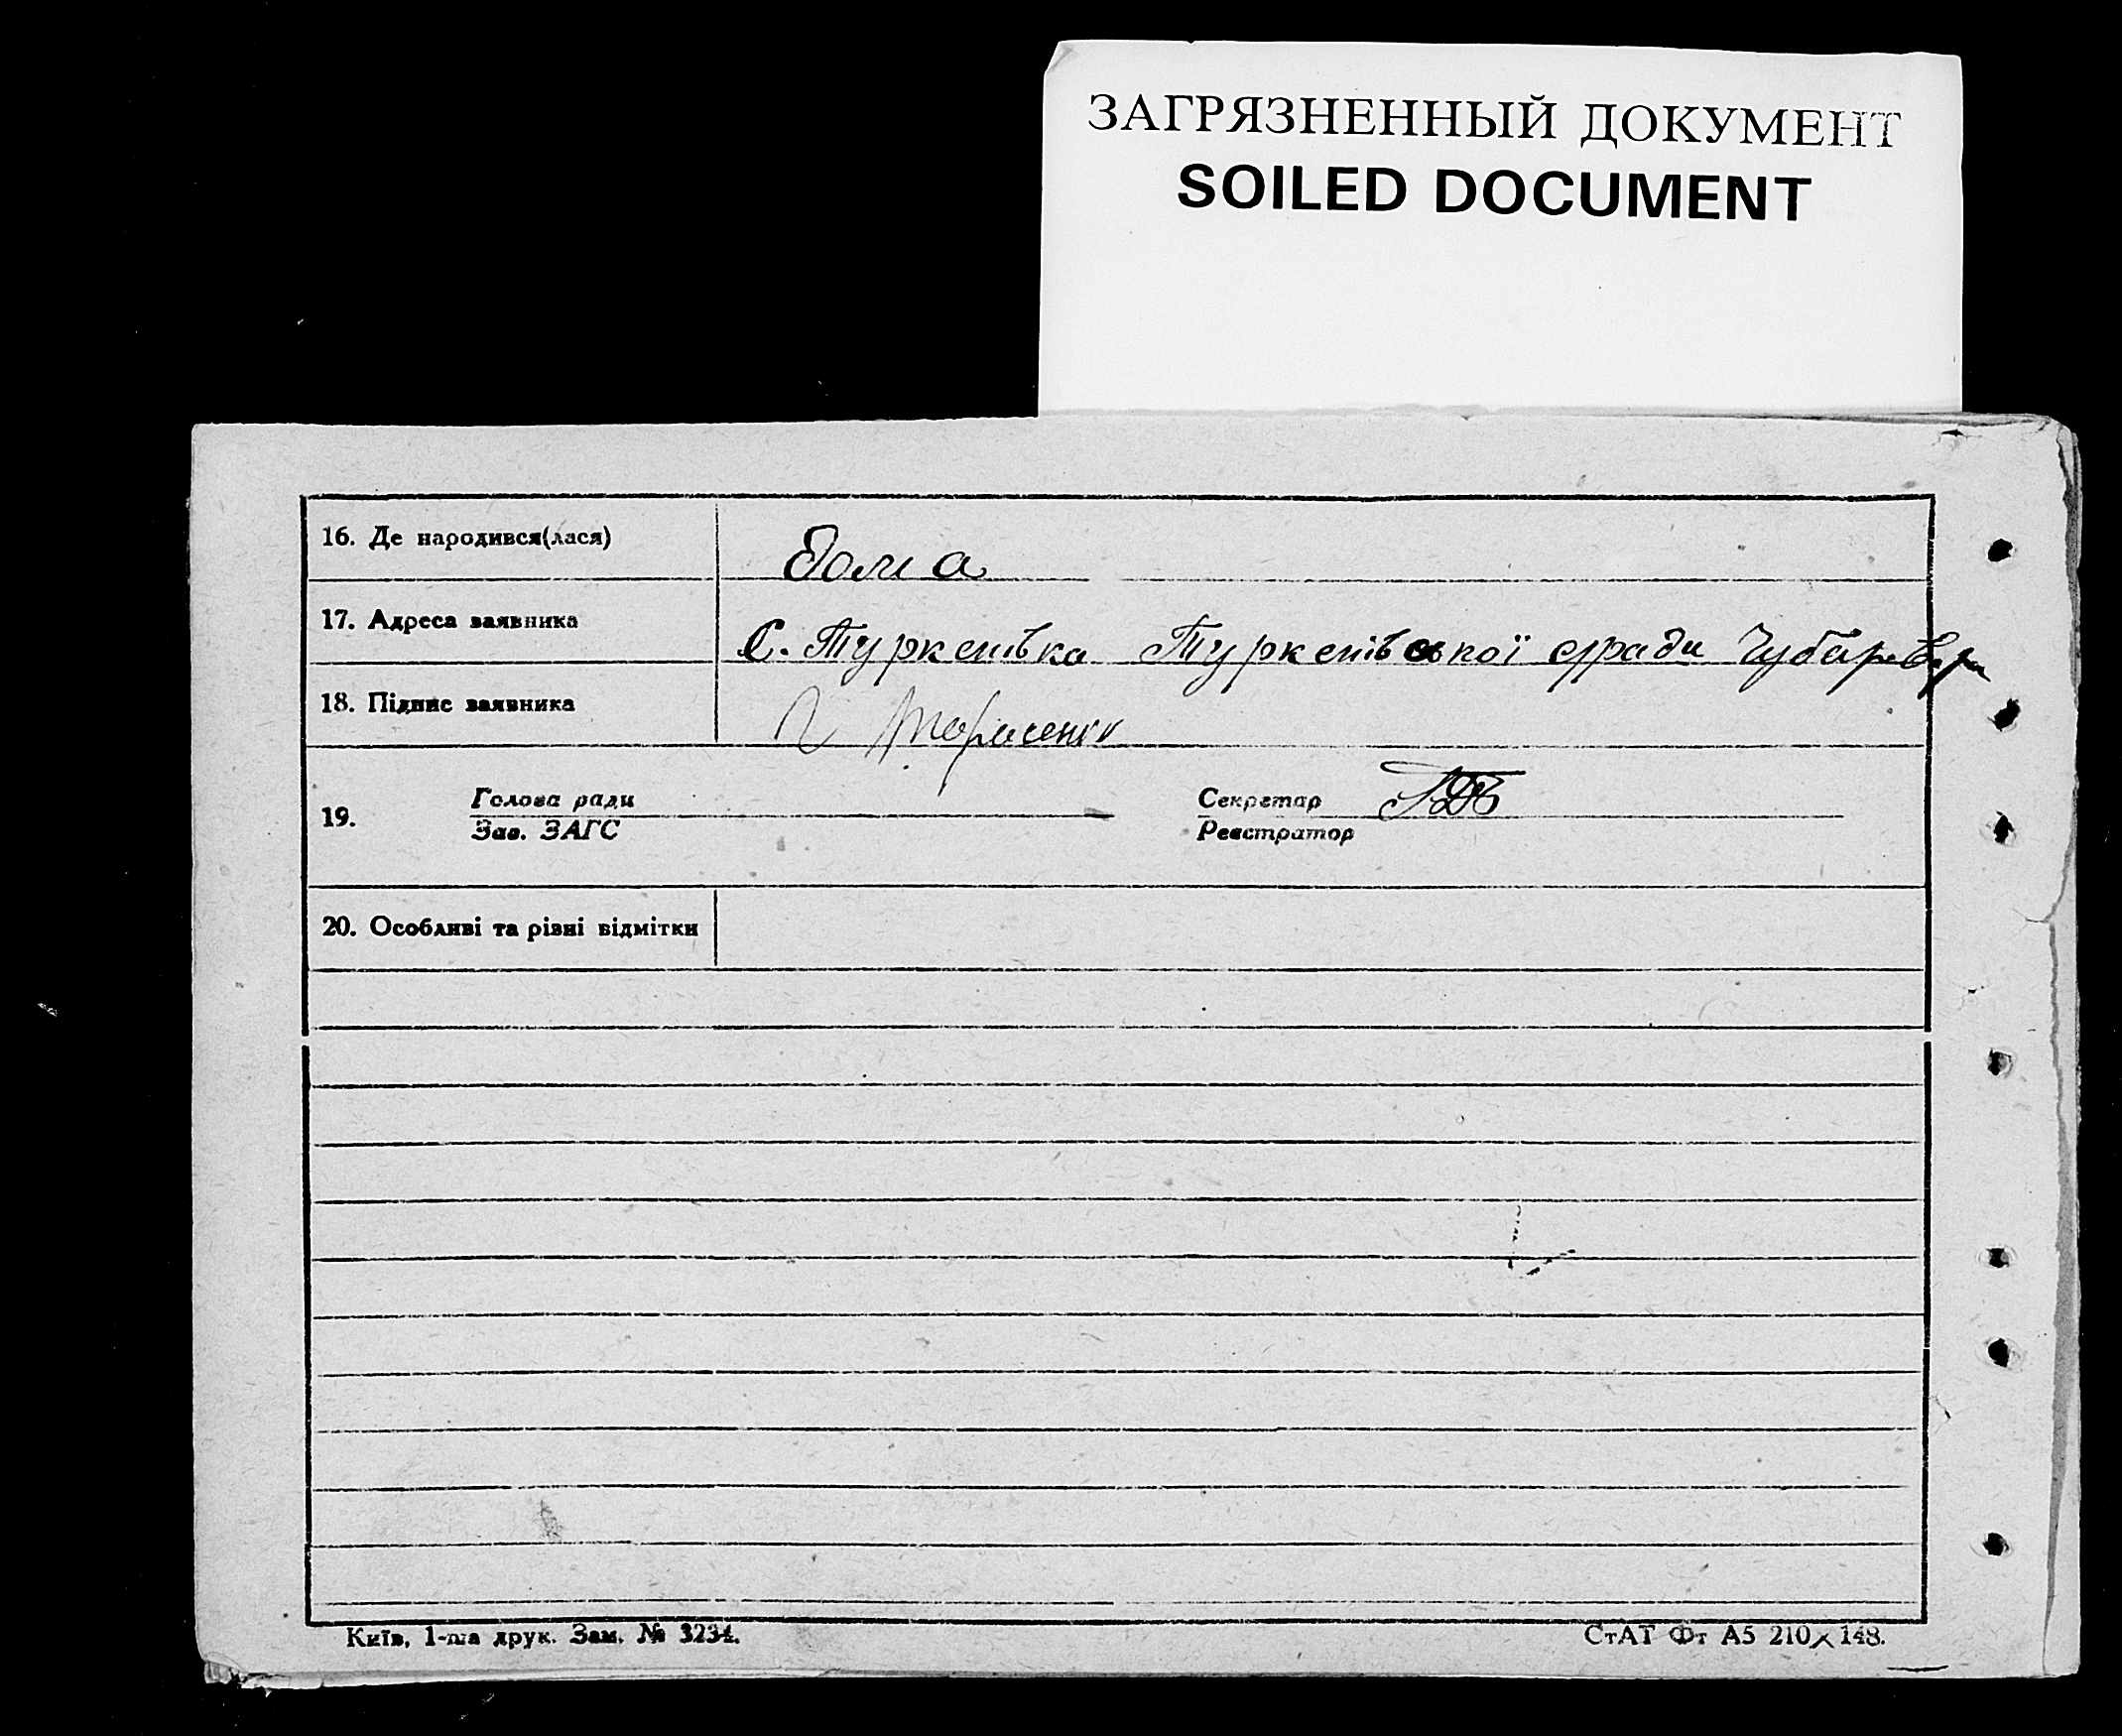 ЗАГРЯЗНЕННЫЙ ДОКУМЕНТ
SOILED DOCUMENT
16. Де народився(лася) дома
17. Адреса заявника С. Туркенівка Туркенівської с/ради Чубарев. р-н
18. Підпис заявника Тарасенко
19. Голова ради Секретар
Зав. ЗАГС Реєстратор
20. Особливі та різні відмітки
Київ, 1-ша друк. Зам. № 3234.
СтАТ Фт А5 210×148.